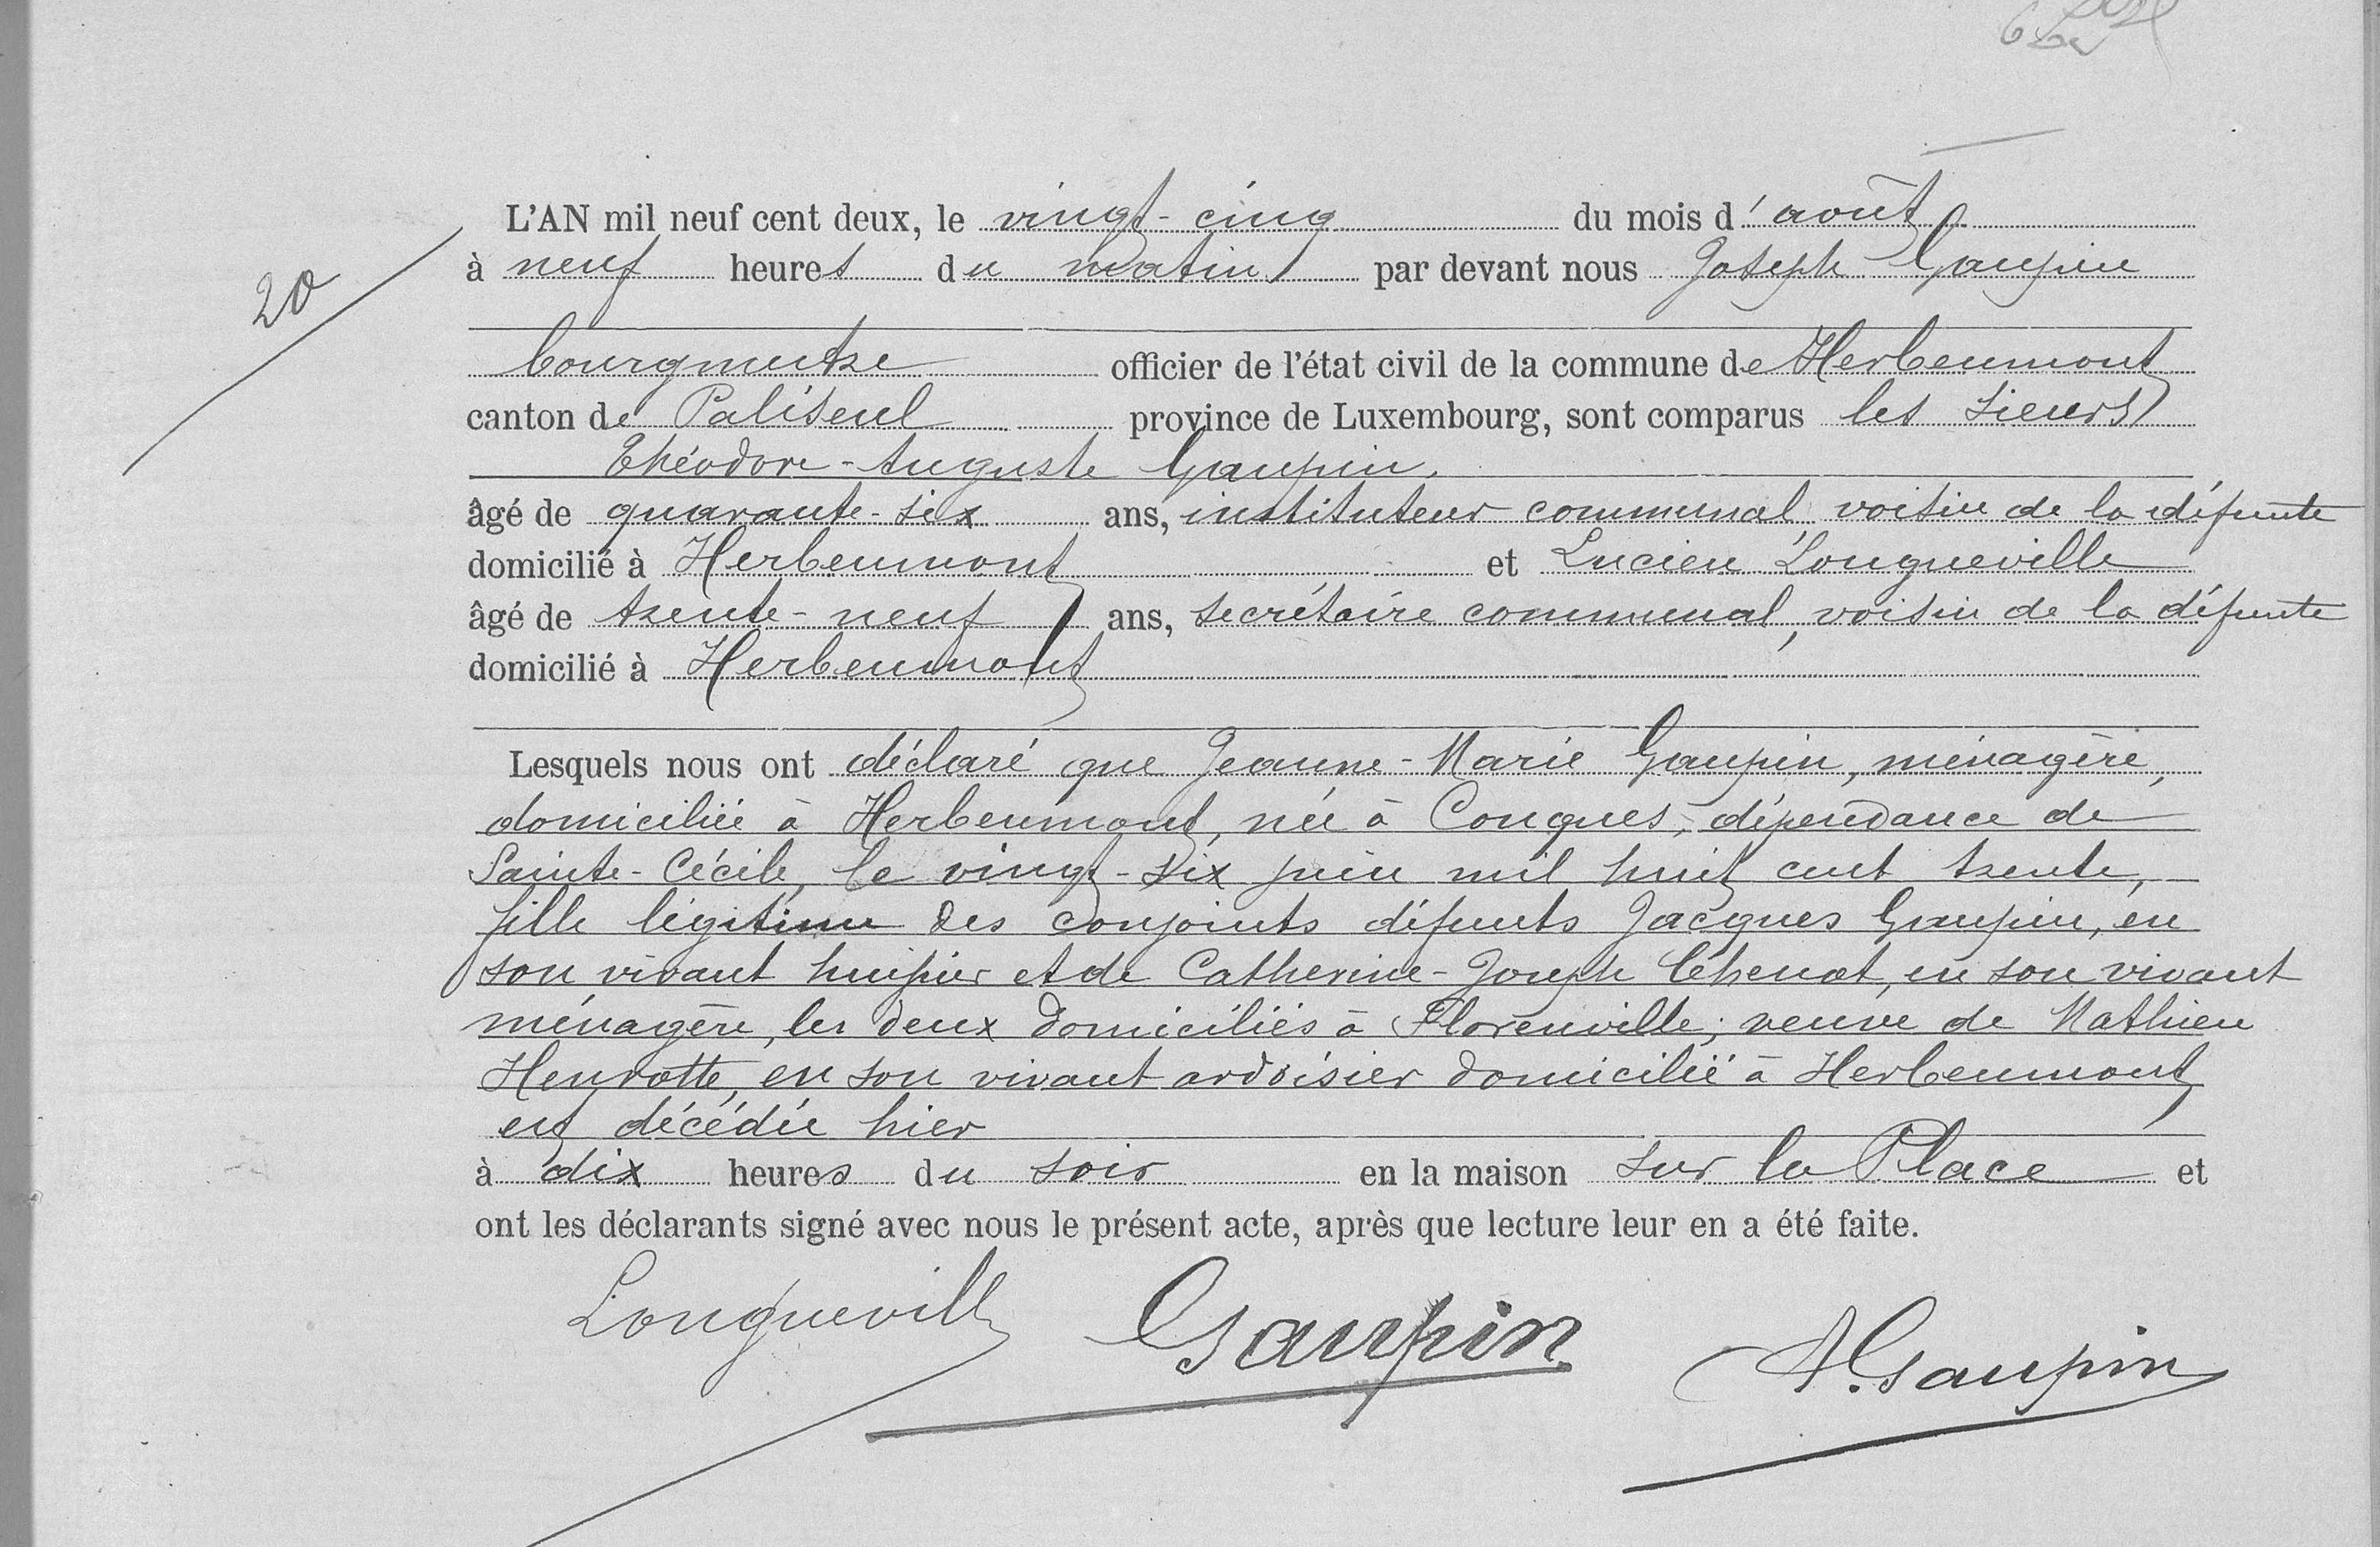 20
L'AN mil neuf cent deux, le vingt-cinq du mois d'août
à neuf heures du matin par devant nous Joseph Gaupin
bourgmestre officier de l'état civil de la commune de Herbeumont
canton de Paliseul province de Luxembourg, sont comparus les sieurs
Théodore-Auguste Gaupin,
âgé de quarante-six ans, instituteur communal, voisin de la défunte
domicilié à Herbeumont et Lucien Longueville
âgé de trente-neuf ans, secrétaire communal, voisin de la défunte
domicilié à Herbeumont
Lesquels nous ont déclaré que Jeanne-Marie Gaupin, ménagère,
domiciliée à Herbeumont, née à Conques, dépendance de
Sainte-Cécile, le vingt-six juin mil huit cent trente,
fille légitime des conjoints défunts Jacques Gaupin, en
son vivant huissier et de Catherine-Joseph en son vivant
ménagère, les deux domiciliés à Florenville; veuve de Mathieu
Henrotte, en son vivant ardoisier domicilié à Herbeumont
est décédée hier
à dix heures du soir en la maison sur la Place et
ont les déclarants signé avec nous le présent acte, après que lecture leur en a été faite.
Longueville Gaupin A. Gaupin